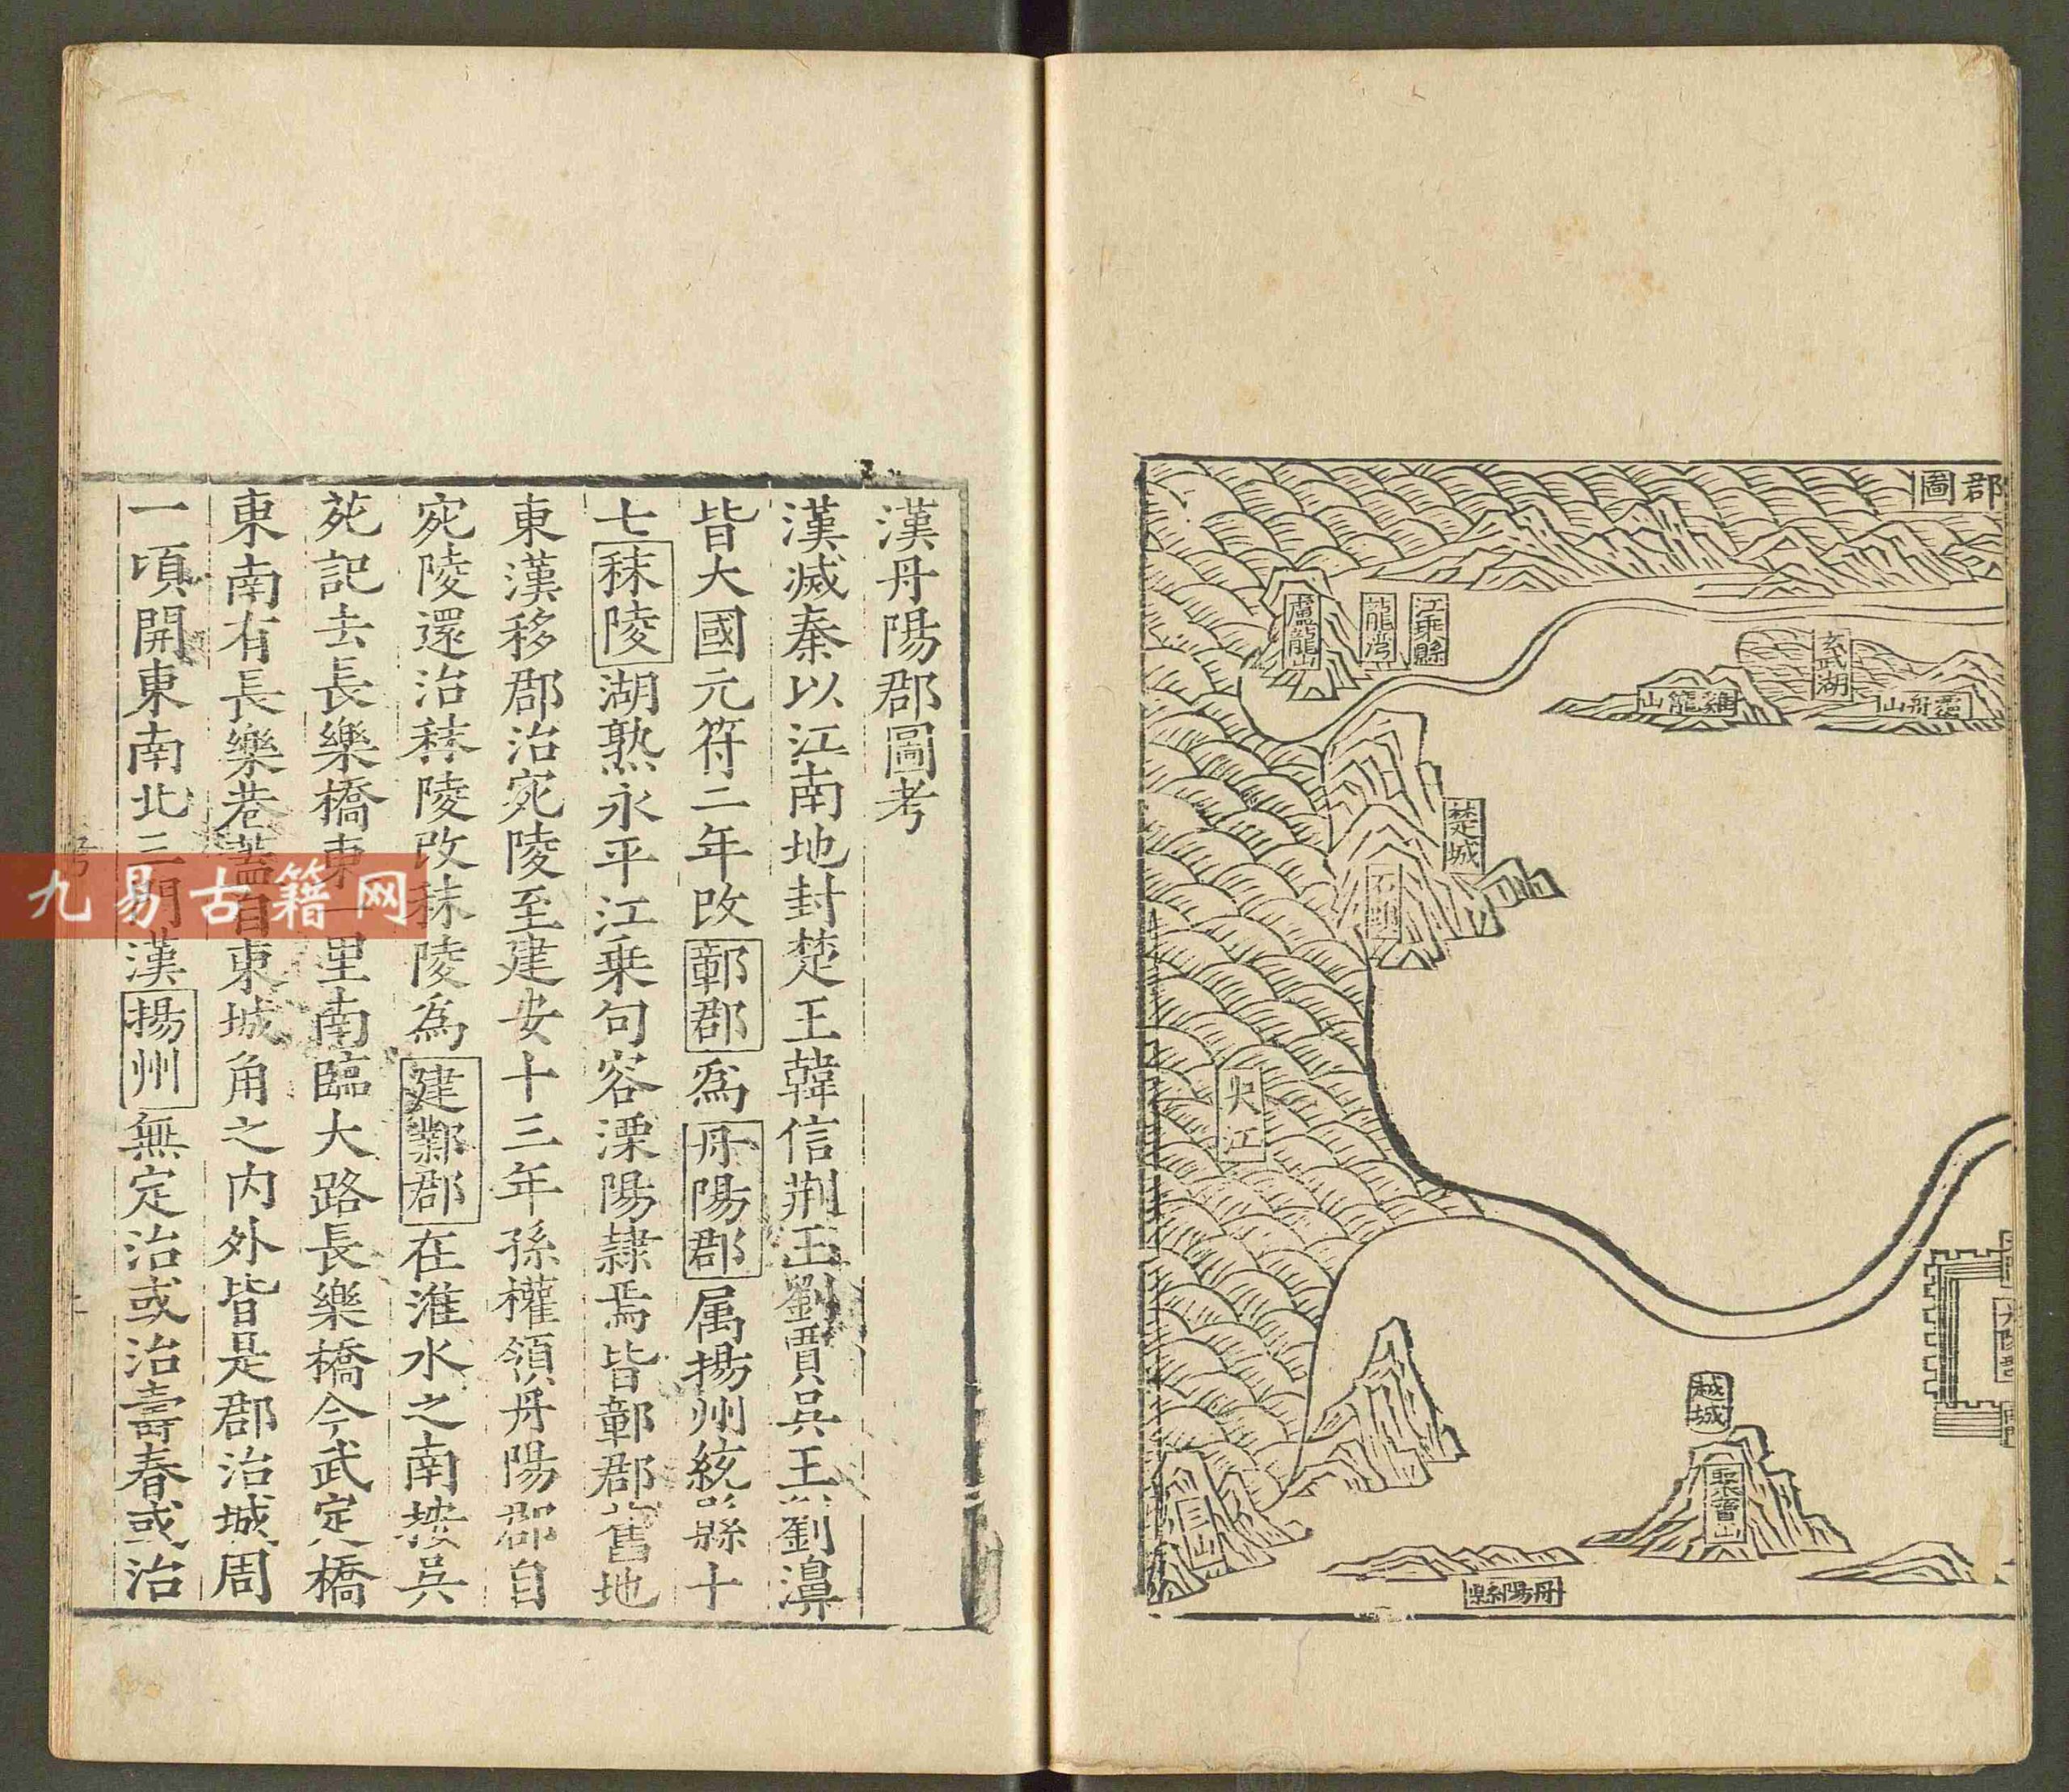 郡圖
江乘縣
龍灣
盧龍山
玄武湖
覆舟山
雞籠山
楚城
石頭
大江
越城
聚寶山
三山
丹陽縣
漢丹陽郡圖考
漢滅秦以江南地封楚王韓信荆王劉賈吳王劉濞
皆大國元符二年改鄣郡爲丹陽郡属揚州統縣十
七秣陵湖熟永平江乗句容溧陽隷焉皆鄣郡舊地
東漢移郡治宛陵至建安十三年孫權領丹陽郡自
宛陵還治秣陵改秣陵爲建鄴郡在淮水之南按吳
苑記去長樂橋東一里南臨大路長樂橋今武定橋
東南有長樂巷蓋自東城角之内外皆是郡治城周
一頃開東南北三門漢揚州無定治或治壽春或治
九易古籍网